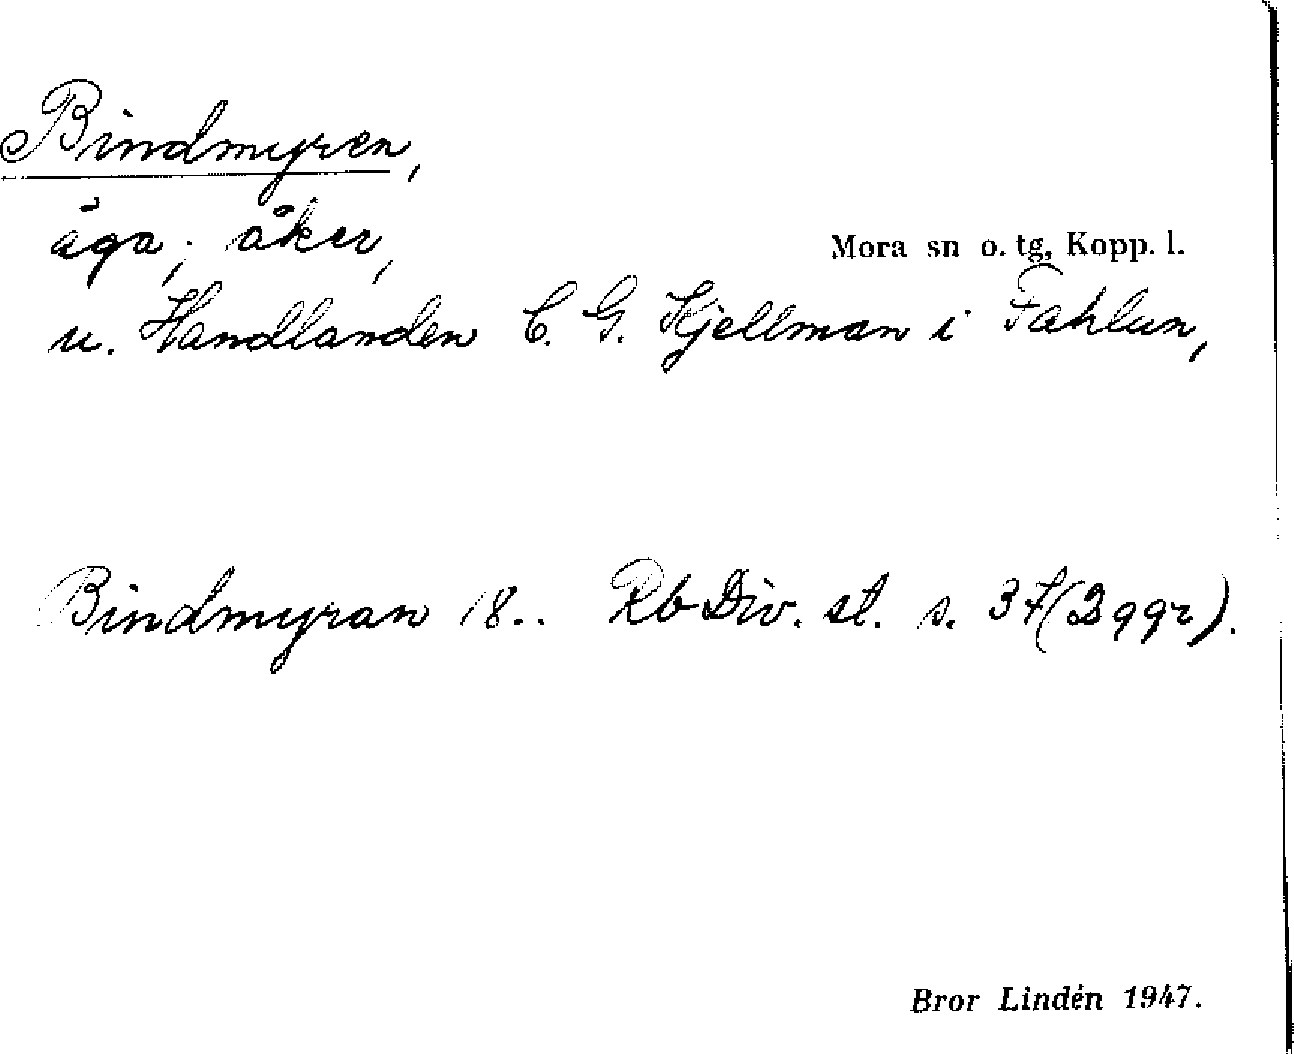 Bindmyren,
äga; åker,
Mora sn o. tg, Kopp. l.
u. Handlanden C. G. Kjellman i Fahlun,
Bindmyran 18.. Rb Div. st. s. 37 (3 ggr).
Bror Lindén 1947.